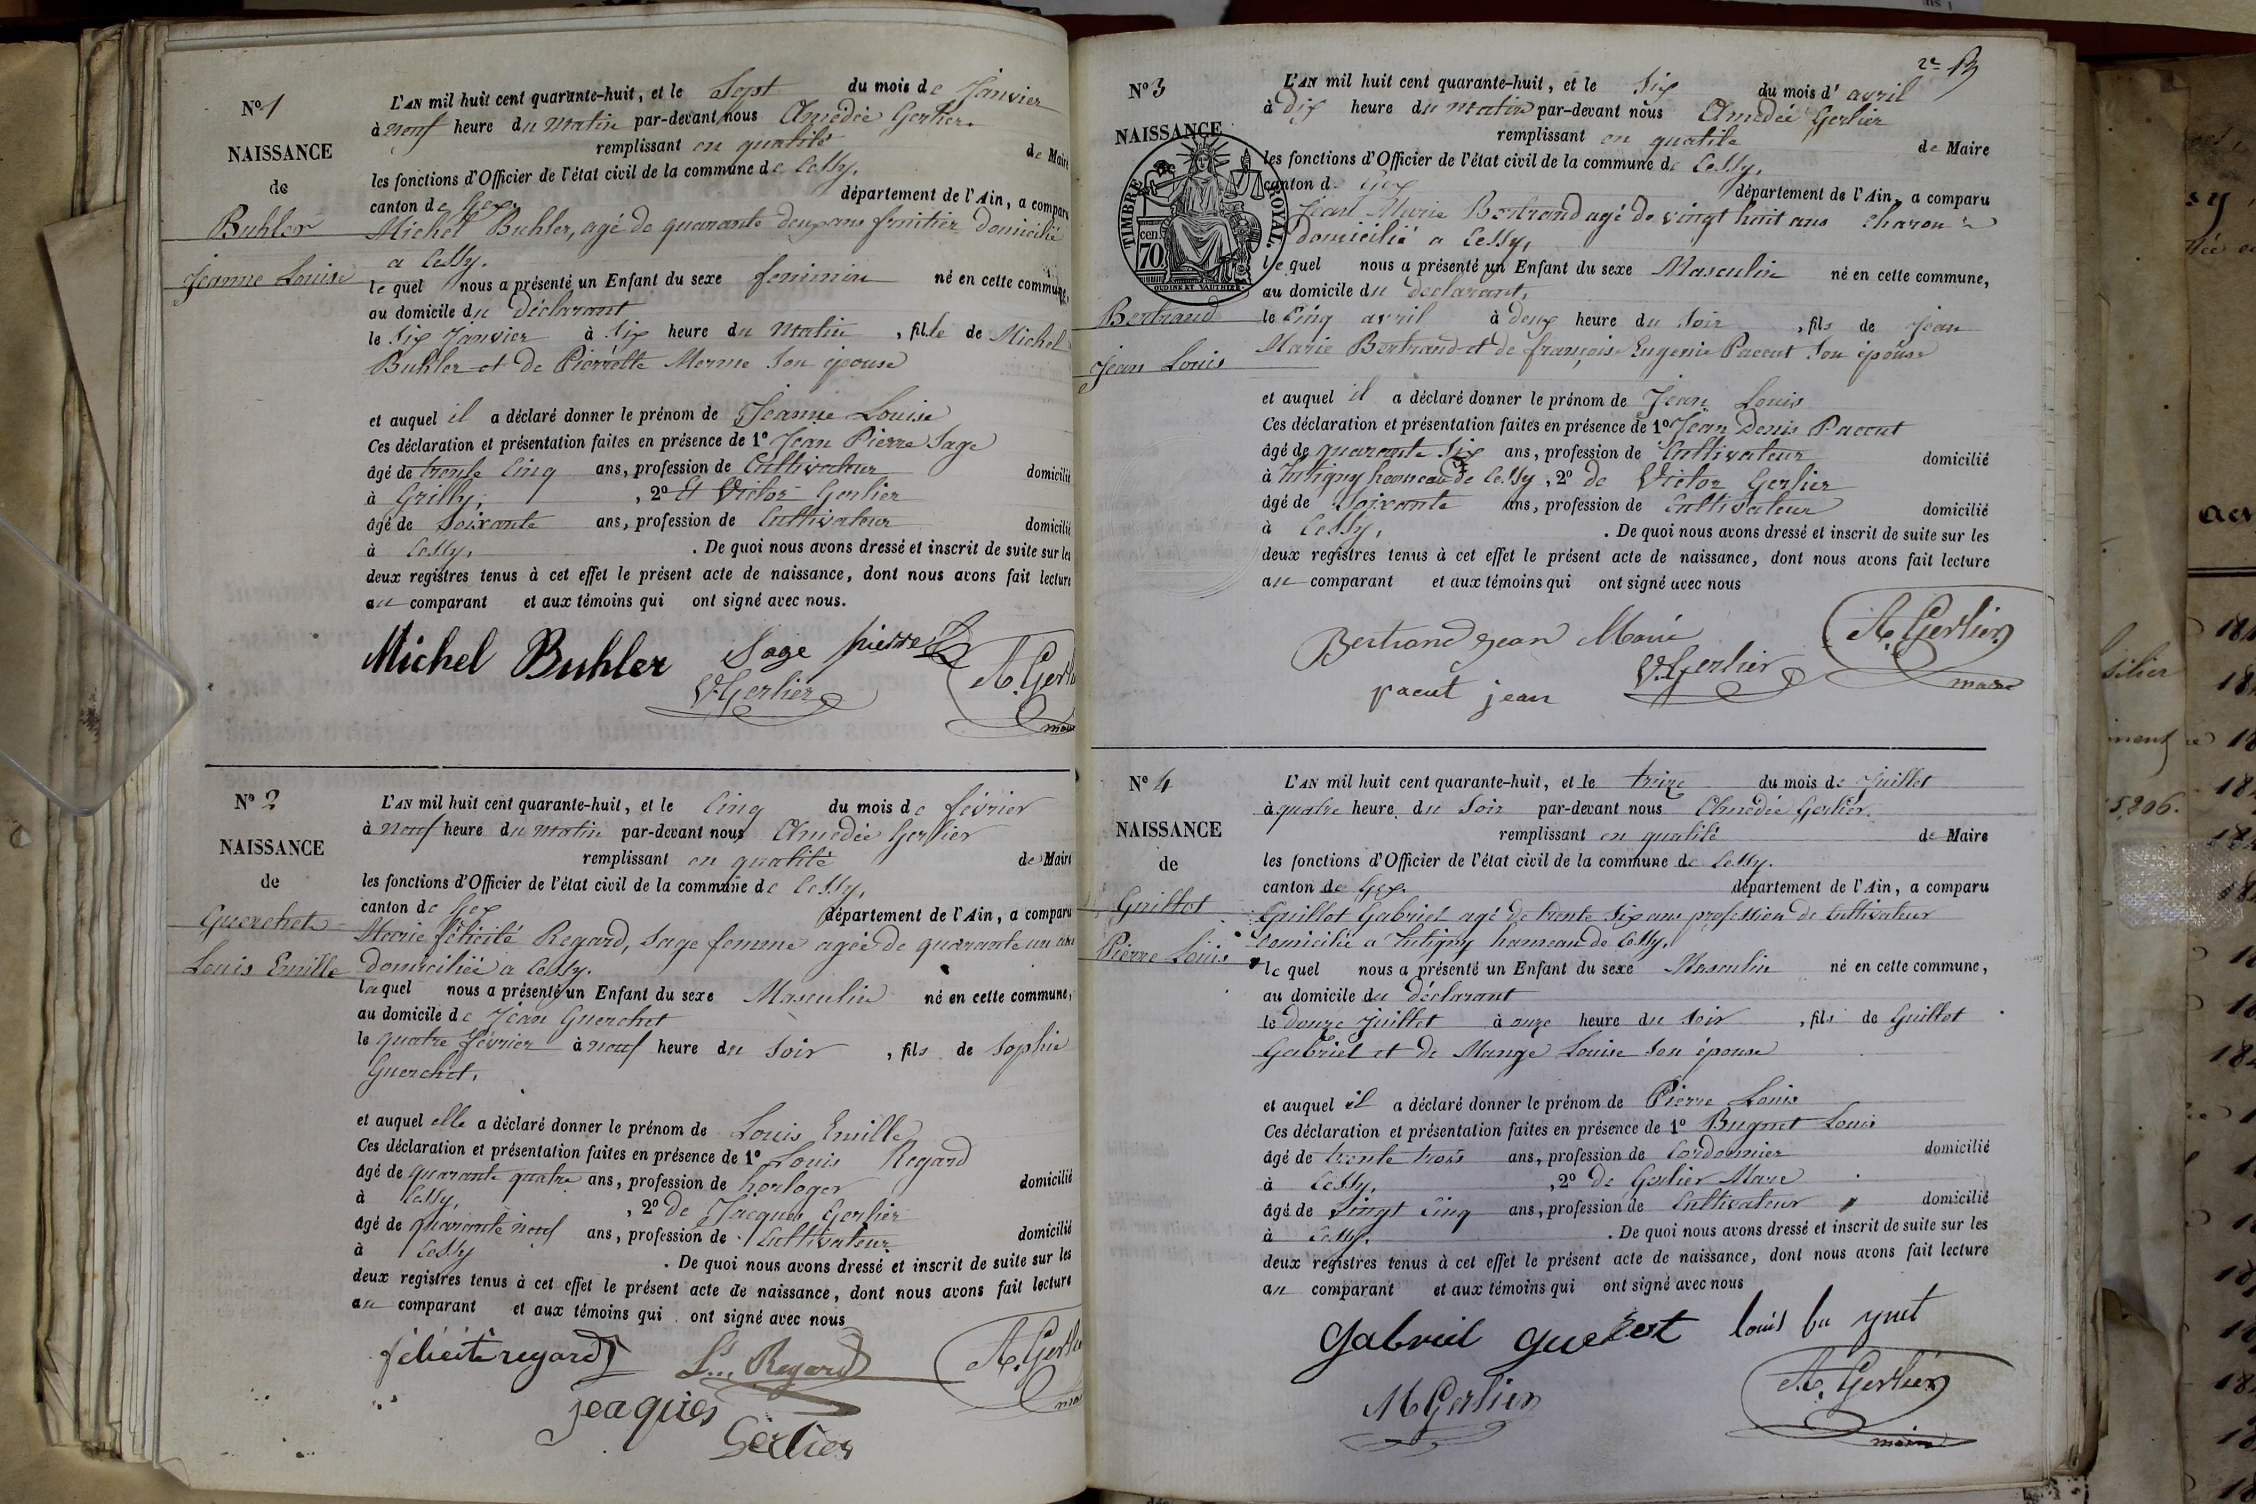 N° 1
NAISSANCE
de
Buhler
Jeanne Louise
L'AN mil huit cent quarante-huit, et le Sept du mois de Janvier
à neuf heure du matin par-devant nous Amédée Gerlier.
remplissant en qualité de Maire
les fonctions d'Officier de l'état civil de la commune de Cessy,
canton de Gex. département de l'Ain, a comparu
Michel Buhler, agé de quarante deux ans fruitier domicilié
a Cessy.
le quel nous a présenté un Enfant du sexe feminin né en cette commune,
au domicile du déclarant
le Six Janvier à Six heure du matin, fille de Michel
Buhler et de Pierrette Merme Son épouse
et auquel il a déclaré donner le prénom de Jeanne Louise
Ces déclaration et présentation faites en présence de 1° Jean Pierre Sage
âgé de trente Cinq ans, profession de Cultivateur domicilié
à Grilly, , 2° Et Victor Gerlier
âgé de Soixante ans, profession de Cultivateur domicilié
à Cessy. . De quoi nous avons dressé et inscrit de suite sur les
deux registres tenus à cet effet le présent acte de naissance, dont nous avons fait lecture
au comparant et aux témoins qui ont signé avec nous.
Michel Buhler Sage pierre A. Gerl
V. Gerlier
N° 2
NAISSANCE
de
Guerchet
Louis Emille
L'AN mil huit cent quarante-huit, et le Cinq du mois de février
à Neuf heure du matin par-devant nous Amédée Gerlier
remplissant en qualité de Maire
les fonctions d'Officier de l'état civil de la commune de Cessy,
canton de Gex département de l'Ain, a comparu
Marie félicité Regard, Sage femme agée de quarante un ans
domiciliée a Cessy.
laquel nous a présenté un Enfant du sexe Masculin né en cette commune,
au domicile de Jean Guerchet
le quatre février à neuf heure du Soir, fils de Sophie
Guerchet.
et auquel elle a déclaré donner le prénom de Louis Emille
Ces déclaration et présentation faites en présence de 1° Louis Regard
âgé de quarante quatre ans, profession de horloger domicilié
à Cessy, , 2° de Jacques Gerlier
âgé de quarante neuf ans, profession de Cultivateur domicilié
à Cessy . De quoi nous avons dressé et inscrit de suite sur les
deux registres tenus à cet effet le présent acte de naissance, dont nous avons fait lecture
au comparant et aux témoins qui ont signé avec nous
félicité regard L... Regard A. Gerl
jeaques
Gerlier
N° 3
NAISSANCE
TIMBRE ROYAL.
70 cen
OUDINE ET VAUTHIER.
Bertrand
Jean Louis
L'AN mil huit cent quarante-huit, et le Six du mois d' avril
à Dix heure du matin par-devant nous Amédée Gerlier
remplissant en qualité de Maire
les fonctions d'Officier de l'état civil de la commune de Cessy,
canton d. Gex département de l'Ain, a comparu
Jean Marie Bertrand agé de vingt huit ans Charon
domicilié a Cessy,
le quel nous a présenté un Enfant du sexe Masculin né en cette commune,
au domicile du declarant,
le Cinq avril à deux heure du Soir, fils de Jean
Marie Bertrand et de françoise Eugenie Paccut Son épouse
et auquel il a déclaré donner le prénom de Jean Louis
Ces déclaration et présentation faites en présence de 1° Jean Denis Paccut
âgé de quarante Six ans, profession de Cultivateur domicilié
à Tutigny hameau de Cessy, 2° de Victor Gerlier
âgé de Soixante ans, profession de Cultivateur domicilié
à Cessy, . De quoi nous avons dressé et inscrit de suite sur les
deux registres tenus à cet effet le présent acte de naissance, dont nous avons fait lecture
au comparant et aux témoins qui ont signé avec nous
Bertrand jean Marie A. Gerlier
V. Gerlier maire
pacut jean
N° 4
NAISSANCE
de
Guillot
Pierre Louis
L'AN mil huit cent quarante-huit, et le treize du mois de Juillet
à quatre heure du Soir par-devant nous Amédée Gerlier.
remplissant en qualité de Maire
les fonctions d'Officier de l'état civil de la commune de Cessy.
canton de Gex. département de l'Ain, a comparu
Guillot Gabriel agé de trente Six ans profession de Cultivateur
domicilié a Tutigny hameau de Cessy.
le quel nous a présenté un Enfant du sexe Masculin né en cette commune,
au domicile du déclarant
le douze Juillet à onze heure du Soir, fils de Guillot
Gabriel et de Mange Louise Son épouse
et auquel il a déclaré donner le prénom de Pierre Louis
Ces déclaration et présentation faites en présence de 1° Bugnet Louis
âgé de trente trois ans, profession de Cordonnier domicilié
à Cessy, , 2° de Gerlier Marc
âgé de Vingt Cinq ans, profession de Cultivateur domicilié
à Cessy. . De quoi nous avons dressé et inscrit de suite sur les
deux registres tenus à cet effet le présent acte de naissance, dont nous avons fait lecture
au comparant et aux témoins qui ont signé avec nous
Gabriel louis bu gnet
M Gerlier A. Gerlier
maire